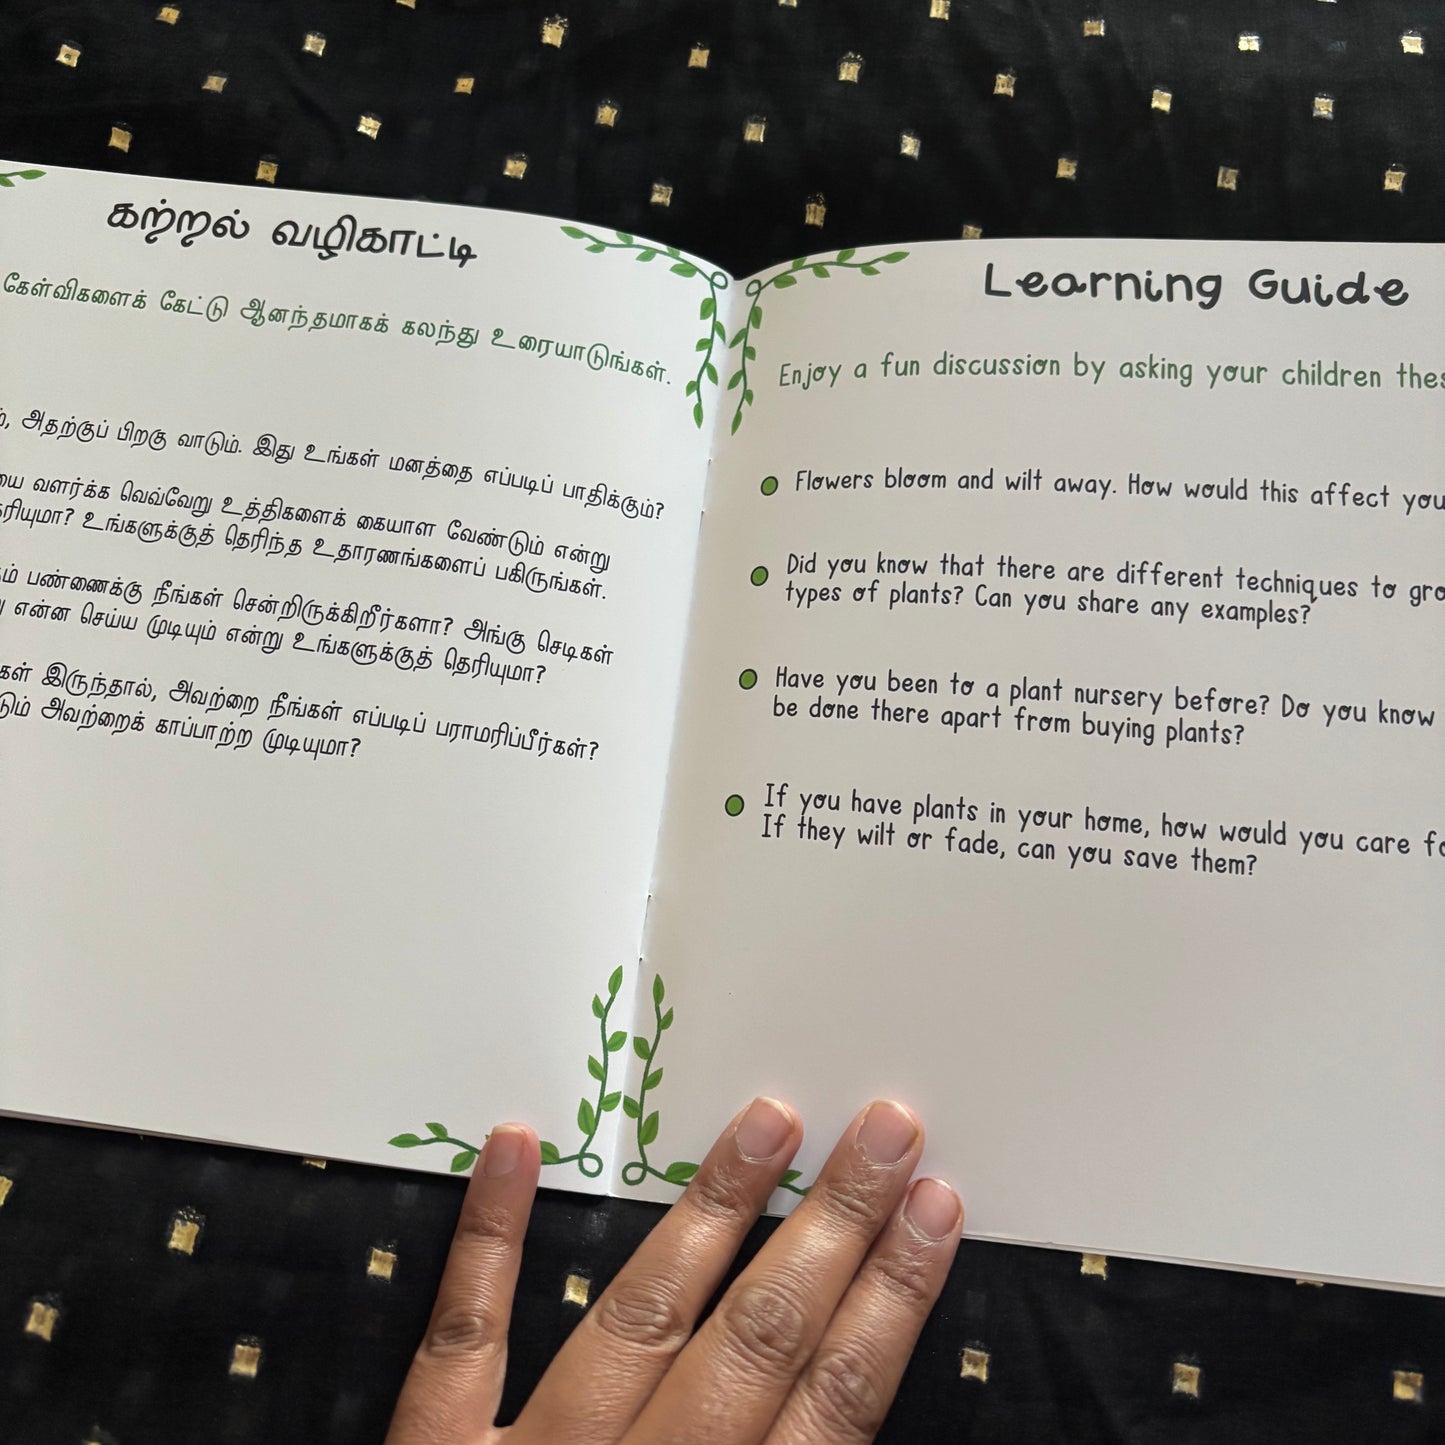 கற்றல் வழிகாட்டி
கேள்விகளைக் கேட்டு ஆனந்தமாகக் கலந்து உரையாடுங்கள்.
அதற்குப் பிறகு வாடும். இது உங்கள் மனத்தை எப்படிப் பாதிக்கும்?
வளர்க்க வெவ்வேறு உத்திகளைக் கையாள வேண்டும் என்று
உங்களுக்குத் தெரிந்த உதாரணங்களைப் பகிருங்கள்.
பண்ணைக்கு நீங்கள் சென்றிருக்கிறீர்களா? அங்கு செடிகள்
என்ன செய்ய முடியும் என்று உங்களுக்குத் தெரியுமா?
இருந்தால், அவற்றை நீங்கள் எப்படிப் பராமரிப்பீர்கள்?
அவற்றைக் காப்பாற்ற முடியுமா?
Learning Guide
Enjoy a fun discussion by asking your children
Flowers bloom and wilt away. How would this affect
Did you know that there are different techniques to
types of plants? Can you share any examples?
Have you been to a plant nursery before? Do you know
be done there apart from buying plants?
If you have plants in your home, how would you care
If they wilt or fade, can you save them?